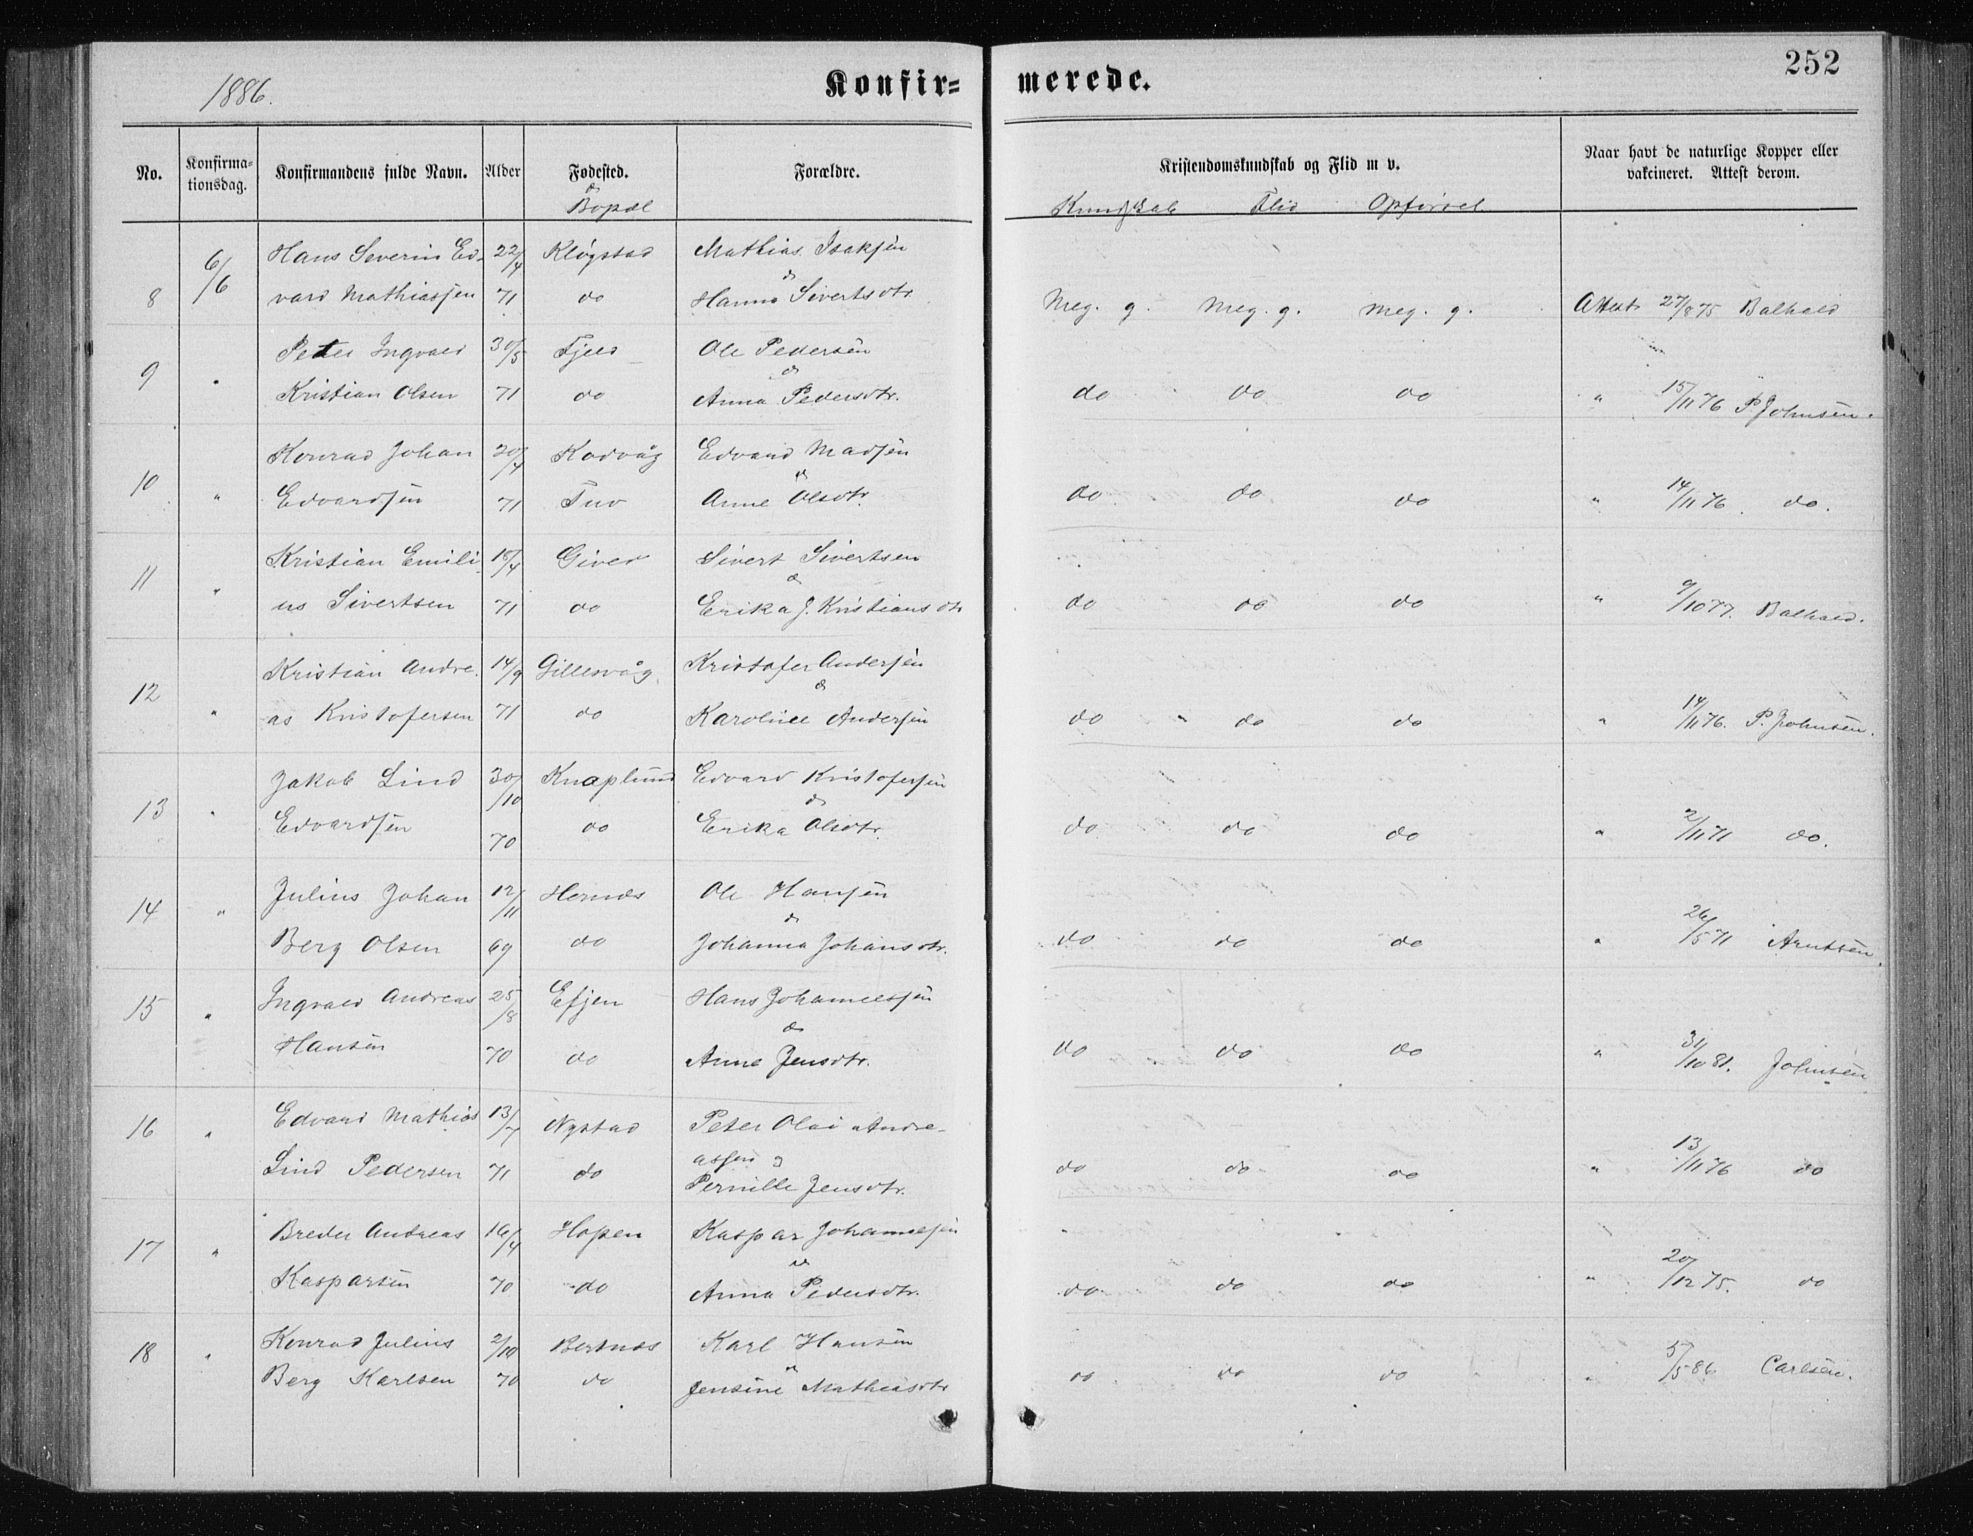 1886.
Konfir=
merede.
252
No.
Konfirma=
tionsdag.
Konfirmandens fulde Navn.
Alder
Fødested.
&
Bopæl
Forældre.
Kristendomskundskab og Flid m v.
Kundskab Flid Opførsel
Naar havt de naturlige Kopper eller
vakcineret. Attest derom.
8 6/6 Hans Severin Ed- 22/4 Kløgstad Mathias Isaksen
&
vard Mathiassen 71 do Hanna Sivertsdtr Meg. g. Meg. g. Meg. g. Attest 27/8 75 Balhald
Peter Ingvald 30/5 Fjeld Ole Pedersen
9 " &
Kristian Olsen 71 do Anna Pedersdtr. do do do " 15/11 76 P. Johnsen.
Konrad Johan 20/4 Kodvåg Edvard Madsen
10 " &
Edvardsen 71 Tuv Anne Olsdtr. do do do " 14/11 76. do.
Kristian Emili- 18/4 Giver Sivert Sivertsen
11 " &
us Sivertsen 71 do Erika J. Kristiansdtr do do do " 9/10 77. Balhald.
Kristian Andre- 14/9 Gillesvåg Kristofer Andersen
12 " &
as Kristofersen 71 do Karoline Andersen do " do do " 14/11 76. P. Johnsen.
Jakob Lind 30/10 Knaplund Edvard Kristofersen
13 " &
Edvardsen 70 do Erika Olsdtr. do do do " 2/11 71 do.
Julius Johan 12/11 Hernæs Ole Hansen
14 " &
Berg Olsen 69 do Johanna Johansdtr. do do do " 26/5 71 Arntsen.
Ingvald Andreas 25/8 Efjen Hans Johannessen
15 " &
Hansen 70 do Anne Jensdtr. do do do " 31/10 81. Johnsen
Edvard Mathias 13/7 Nystad Peter Olai Andre-
16 " assen &
Lind Pedersen 71 do Pernille Jensdtr. do do do " 13/11 76 do
Breder Andreas 16/4 Hopen Kaspar Johannesen
17 " &
Kaspersen 70 do Anna Pedersdtr. do do do " 20/12 75. do
Konrad Julius 2/10 Bertnæs Karl Hansen
18 " &
Berg Karlsen 70 do Jensine Mathiasdtr do do do " 5/5 86 Carlsen.